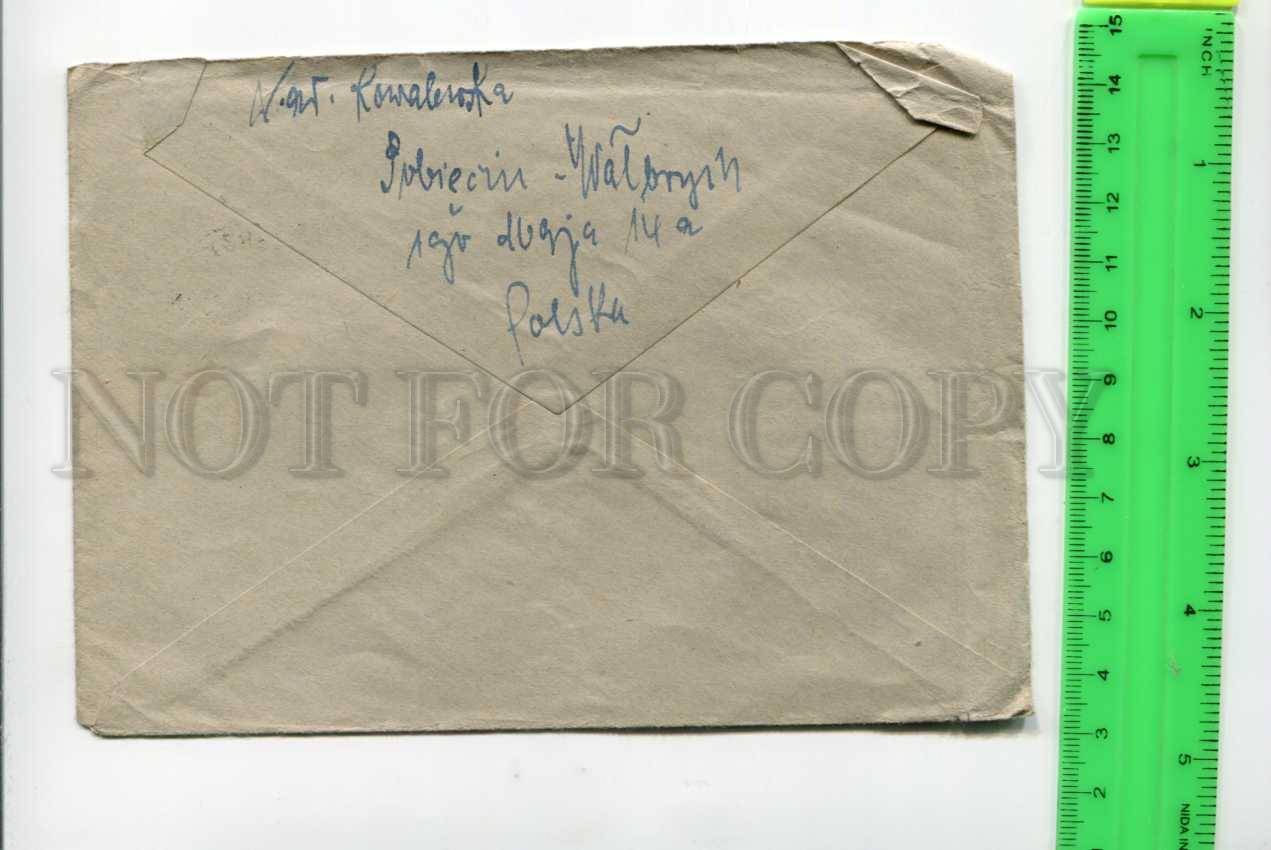 Kowalewska
Sobięcin - Wałbrzych
14 a
Polska
NOT FOR COPY
INCH
15
14
13
12
11
10
9
8
7
6
5
4
3
2
1
2
3
4
5
NIDA IN